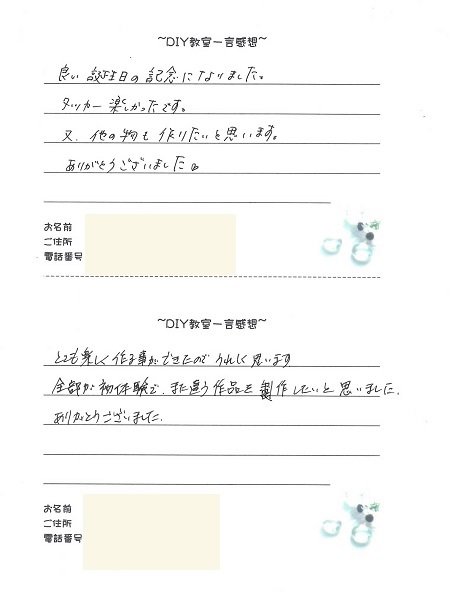 ~DIY教室一言感想~
良い誕生日の記念になりました。
タッカー楽しかったです。
又、他の物も作りたいと思います。
ありがとうございました。
お名前
ご住所
電話番号
~DIY教室一言感想~
とても楽しく作る事ができたのでうれしく思います
全部が初体験で、また違う作品を製作したいと思いました.
ありがとうございました.
お名前
ご住所
電話番号